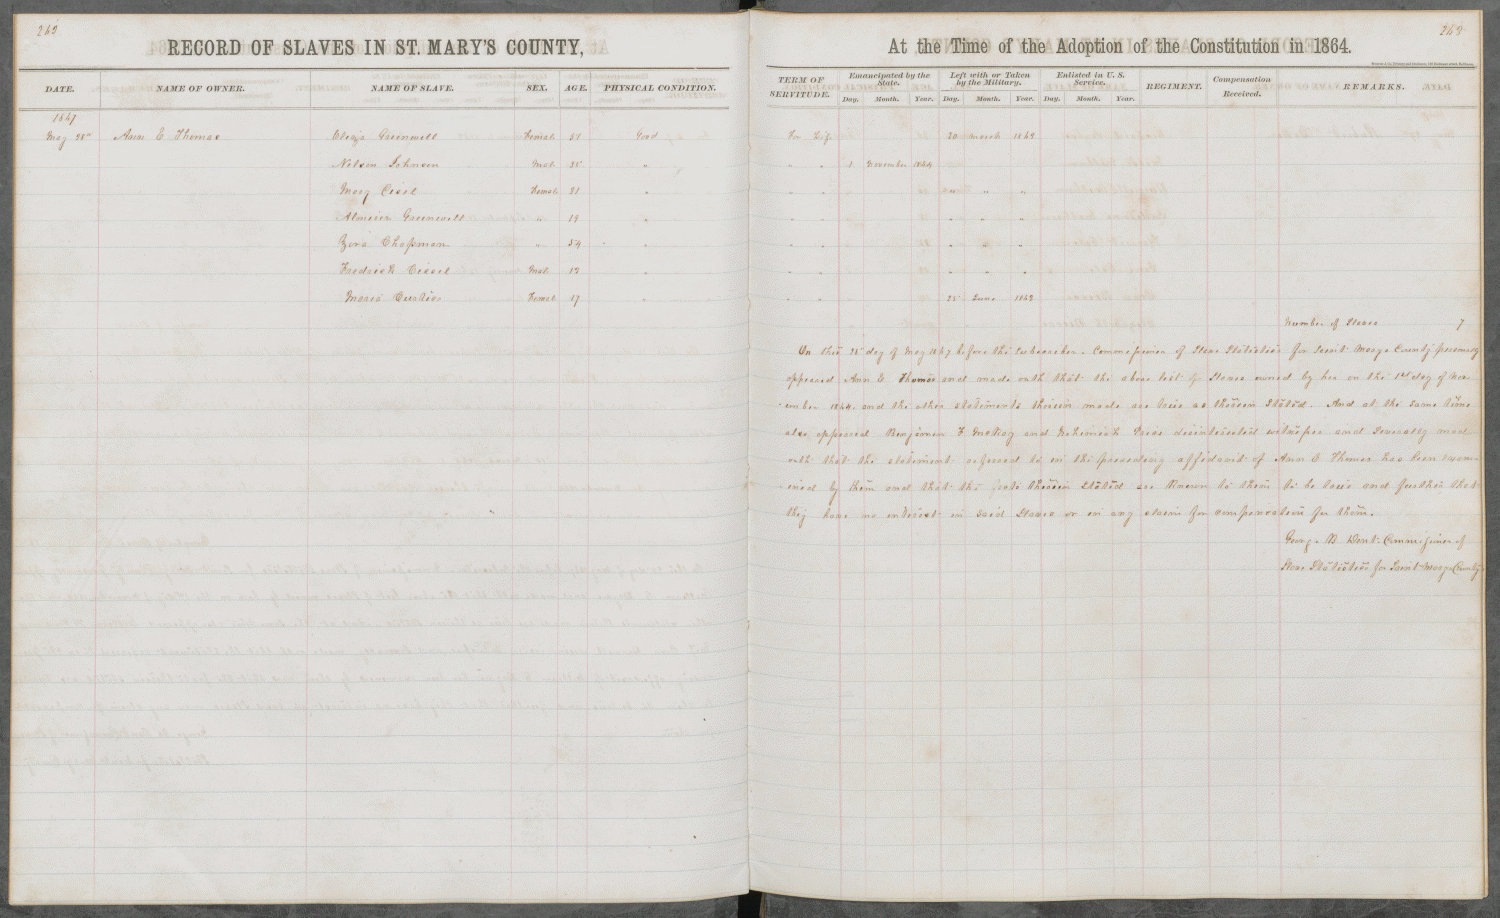 263
RECORD OF SLAVES IN ST. MARY'S COUNTY,
DATE. NAME OF OWNER. NAME OF SLAVE. SEX. AGE. PHYSICAL CONDITION.
1867
May 28" Ann E Thomas Eleoza Greenwell Female 37 Good
Nelson Johnson Male 35 "
Mary Cissel Female 21 "
Almeier Greenwell " 19 "
Zora Chapman " 54 "
Fredrick Cissel Male 13 "
Maria Curtiss Female 17 "
263
At the Time of the Adoption of the Constitution in 1864.
TERM OF SERVITUDE. Emancipated by the State. Left with or Taken by the Military. Enlisted in U. S. Service. REGIMENT. Compensation Received. REMARKS.
Day. Month. Year. Day. Month. Year. Day. Month. Year.
For Life 20 March 1863
" " 1 November 1864
" " " " "
" " " " "
" " " " "
" " " " "
" " 25 June 1863
Number of Slaves 7
On this 28" day of May 1867 before the Subscriber, Commissioner of Slave Statistics for Saint Marys County personaly
appeared Ann E Thomas and made oath that the above list of Slaves owned by her on the 1st day of Nov-
ember 1864, and the other statements therein made are true as therein Stated. And at the same time
also appeared Benjamin F and Nehemiah disinterested witnesses and Severally made
oath that the statement refered to in the preceeding affidavit of Ann E Thomas has been exam-
ined by them and that the facts therein Stated are Known to them to be true and further that
they have no interest in said Slaves or in any claim for compensation for them.
George B Dent Commissioner of
Slave Statistics for Saint Marys County